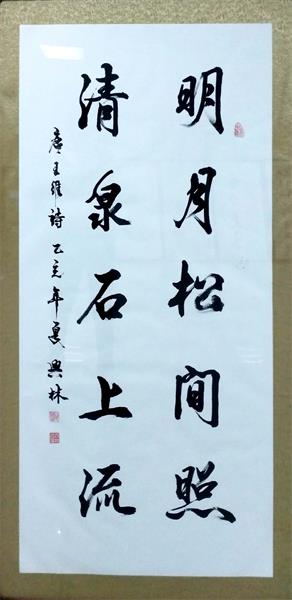 明月松间照
清泉石上流
唐王维诗 乙亥年夏 兴林